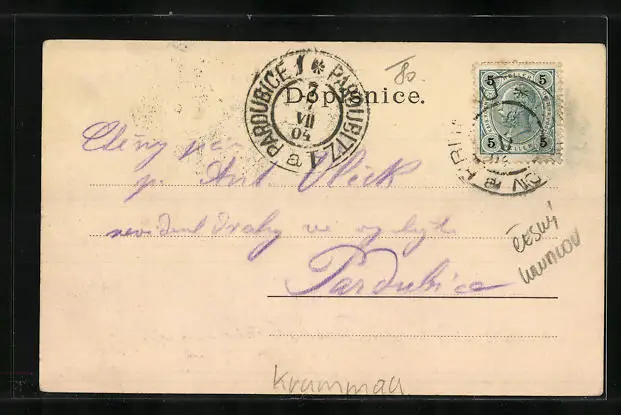 80.
PARDUBICE 1 * PARDUBITZ 1 a
7
VII
04
Dopisnice.
5 5
5 5
Ctěný pán
p. Ant. Vlček
revident dráhy ve
Pardubice
Český
Krumlov
Krummau